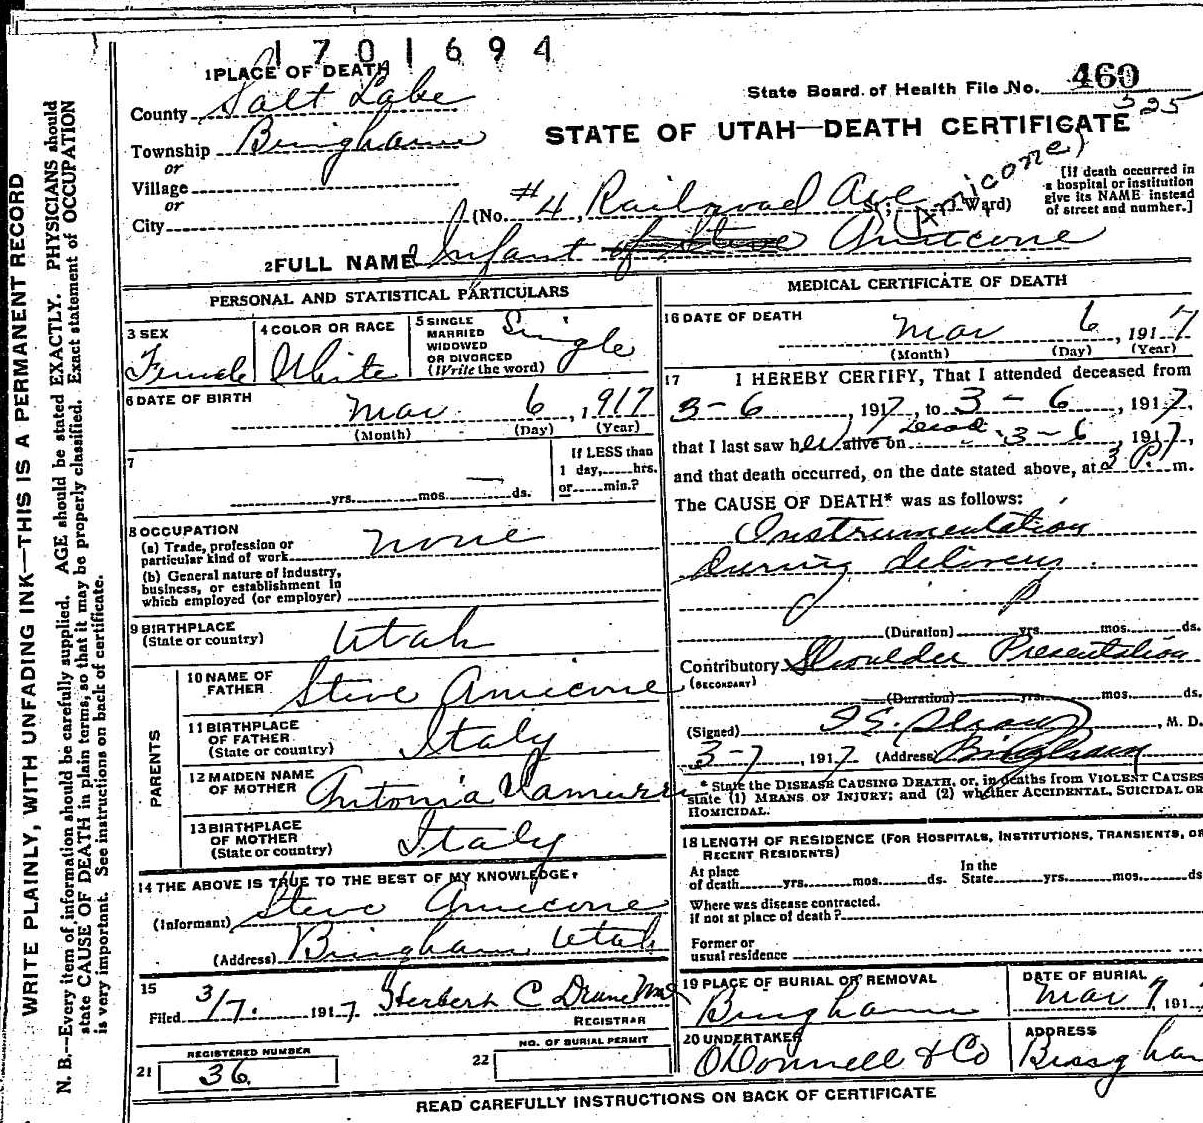 1701694
1 PLACE OF DEATH
County Salt Lake
State Board of Health File No. 460
325
Township Bingham
STATE OF UTAH—DEATH CERTIFICATE
or
Village
or
City
(No. #4, Railroad Ave St; Ward)
(Amicone)
[If death occurred in
a hospital or institution
give its NAME instead
of street and number.]
2 FULL NAME Infant of Steve Amicone
PERSONAL AND STATISTICAL PARTICULARS
3 SEX
Female
4 COLOR OR RACE
White
5 SINGLE
MARRIED
WIDOWED
OR DIVORCED
(Write the word)
Single
6 DATE OF BIRTH
Mar 6, 1917
(Month) (Day) (Year)
7
yrs. mos. — ds.
If LESS than
1 day, hrs.
or min.?
8 OCCUPATION
(a) Trade, profession or
particular kind of work none
(b) General nature of industry,
business, or establishment in
which employed (or employer)
9 BIRTHPLACE
(State or country) Utah
PARENTS
10 NAME OF
FATHER Steve Amicone
11 BIRTHPLACE
OF FATHER
(State or country) Italy
12 MAIDEN NAME
OF MOTHER Antonia
13 BIRTHPLACE
OF MOTHER
(State or country) Italy
14 THE ABOVE IS TRUE TO THE BEST OF MY KNOWLEDGE.
(Informant) Steve Amicone
(Address) Bingham Utah
15
Filed 3/7. 1917 Herbert C
REGISTRAR
REGISTERED NUMBER
21 36
NO. OF BURIAL PERMIT
22
MEDICAL CERTIFICATE OF DEATH
16 DATE OF DEATH
Mar 6, 1917
(Month) (Day) (Year)
17 I HEREBY CERTIFY, That I attended deceased from
3-6, 1917, to 3-6, 1917,
that I last saw her alive on dead 3-6, 1917,
and that death occurred, on the date stated above, at 3 P. m.
The CAUSE OF DEATH* was as follows:
Instrumentation
During delivery.
(Duration) yrs. mos. ds.
Contributory Shoulder Presentation
(SECONDARY)
(Duration) yrs. mos. ds.
(Signed) M. D.
3-7, 1917 (Address) Bingham
* State the DISEASE CAUSING DEATH, or, in deaths from VIOLENT CAUSES
state (1) MEANS OF INJURY; and (2) whether ACCIDENTAL, SUICIDAL OR
HOMICIDAL.
18 LENGTH OF RESIDENCE (FOR HOSPITALS, INSTITUTIONS, TRANSIENTS, OR
RECENT RESIDENTS)
At place
of death yrs. mos. ds.
In the
State yrs. mos. ds
Where was disease contracted.
if not at place of death?
Former or
usual residence
19 PLACE OF BURIAL OR REMOVAL
Bingham
DATE OF BURIAL
Mar 7, 191
20 UNDERTAKER
O'Donnell & Co
ADDRESS
Bingham
READ CAREFULLY INSTRUCTIONS ON BACK OF CERTIFICATE
WRITE PLAINLY, WITH UNFADING INK—THIS IS A PERMANENT RECORD
N. B.—Every item of information should be carefully supplied. AGE should be stated EXACTLY. PHYSICIANS should
state CAUSE OF DEATH in plain terms, so that it may be properly classified. Exact statement of OCCUPATION
is very important. See instructions on back of certificate.